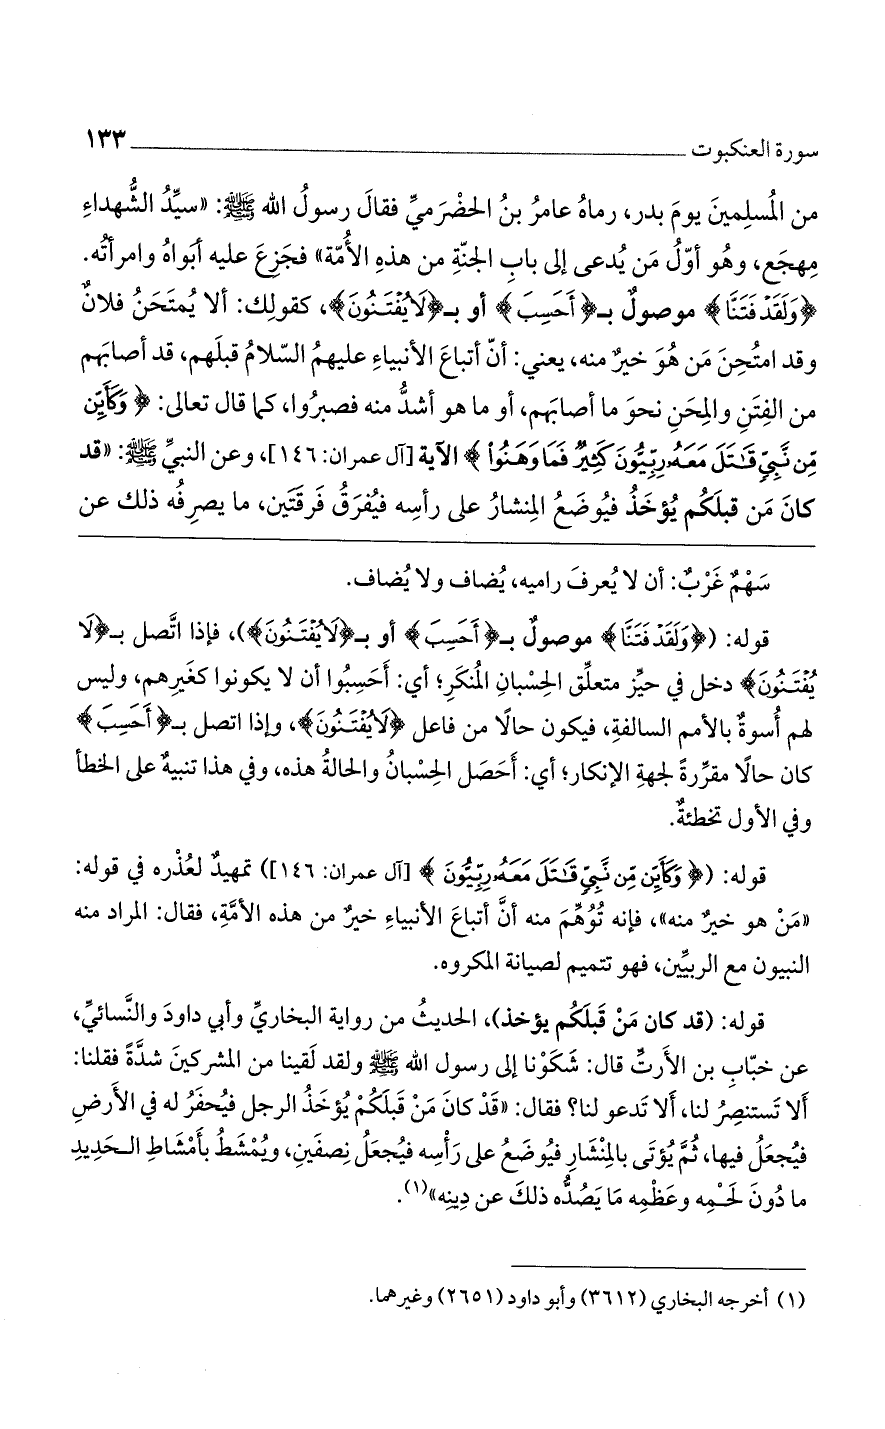 سورة العنكبوت ١٣٣
من المُسلِمينَ يومَ بدر، رماهُ عامرُ بنُ الحَضْرَميِّ فقالَ رسولُ الله ﷺ: «سيِّدُ الشُّهداءِ
مِهجَع، وهُو أوّلُ مَن يُدعى إلى بابِ الجنّةِ من هذهِ الأُمّة» فجَزِعَ عليه أبَواهُ وامرأتُه.
﴿وَلَقَدْ فَتَنَّا﴾ موصولٌ بـ﴿أَحَسِبَ﴾ أو بـ﴿لَا يُفْتَنُونَ﴾، كقولِك: ألا يُمتَحَنُ فلانٌ
وقد امتُحِنَ مَن هُوَ خيرٌ منه، يعني: أنّ أتباعَ الأنبياءِ عليهمُ السّلامُ قبلَهم، قد أصابَهم
من الفِتَنِ والمِحَنِ نحوَ ما أصابَهم، أو ما هو أشدُّ منه فصبرُوا، كما قال تعالى: ﴿وَكَأَيِّن
مِّن نَّبِىٍّ قَـٰتَلَ مَعَهُۥ رِبِّيُّونَ كَثِيرٌ فَمَا وَهَنُوا۟﴾ الآية [آل عمران: ١٤٦]، وعن النبيِّ ﷺ: «قد
كانَ مَن قبلَكُم يُؤخَذُ فيُوضَعُ المِنشارُ على رأسِه فيُفرَقُ فَرقَتَين، ما يصرِفُه ذلك عن
سَهْمٌ غَرْبٌ: أن لا يُعرفَ راميه، يُضاف ولا يُضاف.
قوله: (﴿وَلَقَدْ فَتَنَّا﴾ موصولٌ بـ﴿أَحَسِبَ﴾ أو بـ﴿لَا يُفْتَنُونَ﴾)، فإذا اتَّصل بـ﴿لَا
يُفْتَنُونَ﴾ دخل في حيِّز متعلِّق الحِسْبانِ المُنكَرِ؛ أي: أَحَسِبُوا أن لا يكونوا كغَيرِهم، وليس
لهم أُسوةٌ بالأمم السالفةِ، فيكون حالًا من فاعل ﴿لَا يُفْتَنُونَ﴾، وإذا اتصل بـ﴿أَحَسِبَ﴾
كان حالًا مقرِّرةً لجهةِ الإنكار؛ أي: أَحَصَل الحِسْبانُ والحالةُ هذه، وفي هذا تنبيهٌ على الخطأ
وفي الأول تخطئةٌ.
قوله: (﴿وَكَأَيِّن مِّن نَّبِىٍّ قَـٰتَلَ مَعَهُۥ رِبِّيُّونَ﴾ [آل عمران: ١٤٦]) تمهيدٌ لعُذْره في قوله:
«مَنْ هو خيرٌ منه»، فإنه تُوُهِّمَ منه أنَّ أتباعَ الأنبياءِ خيرٌ من هذه الأمَّةِ، فقال: المراد منه
النبيون مع الربيِّين، فهو تتميم لصيانة المكروه.
قوله: (قد كان مَنْ قَبلَكُم يؤخذ)، الحديثُ من رواية البخاريِّ وأبي داودَ والنَّسائيِّ،
عن خبّابِ بن الأَرتِّ قال: شَكَوْنا إلى رسول الله ﷺ ولقد لَقينا من المشركينَ شدَّةً فقلنا:
ألا تَستنصِرُ لنا، ألا تَدعو لنا؟ فقال: «قَدْ كانَ مَنْ قَبلَكُمْ يُؤخَذُ الرجل فيُحفَرُ له في الأرضِ
فيُجعَلُ فيها، ثُمَّ يُؤتَى بالمِنْشَارِ فيُوضَعُ على رَأْسِه فيُجعَلُ نِصفَينِ، ويُمْشَطُ بأَمْشَاطِ الـحَدِيدِ
ما دُونَ لَحْـمِه وعَظْمِه مَا يَصُدُّه ذلكَ عن دِينِه»(١).
(١) أخرجه البخاري (٣٦١٢) وأبو داود (٢٦٥١) وغيرهما.